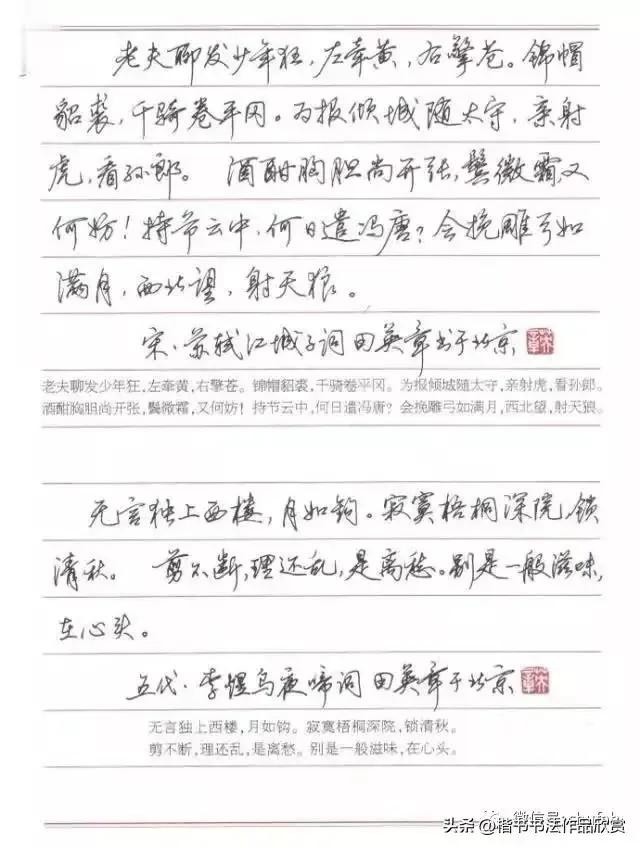 老夫聊发少年狂，左牵黄，右擎苍。锦帽
貂裘，千骑卷平冈。为报倾城随太守，亲射
虎，看孙郎。 酒酣胸胆尚开张，鬓微霜，又
何妨！持节云中，何日遣冯唐？会挽雕弓如
满月，西北望，射天狼。
宋·苏轼江城子词 田英章书于北京
老夫聊发少年狂，左牵黄，右擎苍。锦帽貂裘，千骑卷平冈。为报倾城随太守，亲射虎，看孙郎。
酒酣胸胆尚开张，鬓微霜，又何妨！持节云中，何日遣冯唐？会挽雕弓如满月，西北望，射天狼。
无言独上西楼，月如钩。寂寞梧桐深院，锁
清秋。 剪不断，理还乱，是离愁。别是一般滋味，
在心头。
五代·李煜乌夜啼词 田英章于北京
无言独上西楼，月如钩。寂寞梧桐深院，锁清秋。
剪不断，理还乱，是离愁。别是一般滋味，在心头。
头条@楷书书法作品欣赏